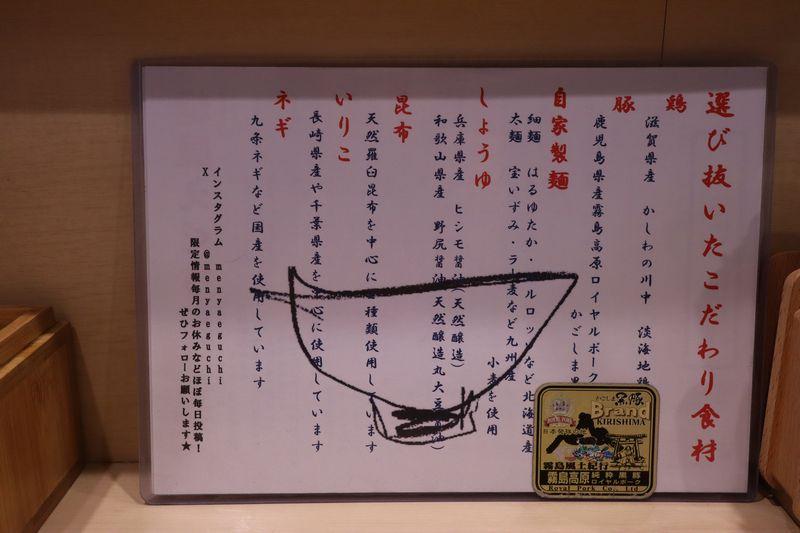 選び抜いたこだわり食材
鶏
滋賀県産 かしわの川中 淡海地鶏
豚
鹿児島県産霧島高原ロイヤルポーク
かごしま黒
自家製麺
細麺 はるゆたか・ルルロッソなど北海道産
太麺 宝いずみ・ラー麦など九州産
小麦を使用
しょうゆ
兵庫県産 ヒシモ醤油(天然醸造)
和歌山県産 野尻醤油(天然醸造丸大豆醤油)
昆布
天然羅臼昆布を中心に 種類使用しています
いりこ
長崎県産や千葉県産を中心に使用しています
ネギ
九条ネギなど国産を使用しています
インスタグラム menyaeguchi
X @menyaeguchi
限定情報毎月のお休みなどほぼ毎日投稿!
ぜひフォローお願いします★
かごしま黒豚
Brand
KIRISHIMA
ROYAL PORK
霧島風土紀行
霧島高原
純粋黒豚
ロイヤルポーク
Royal Pork Co., Ltd